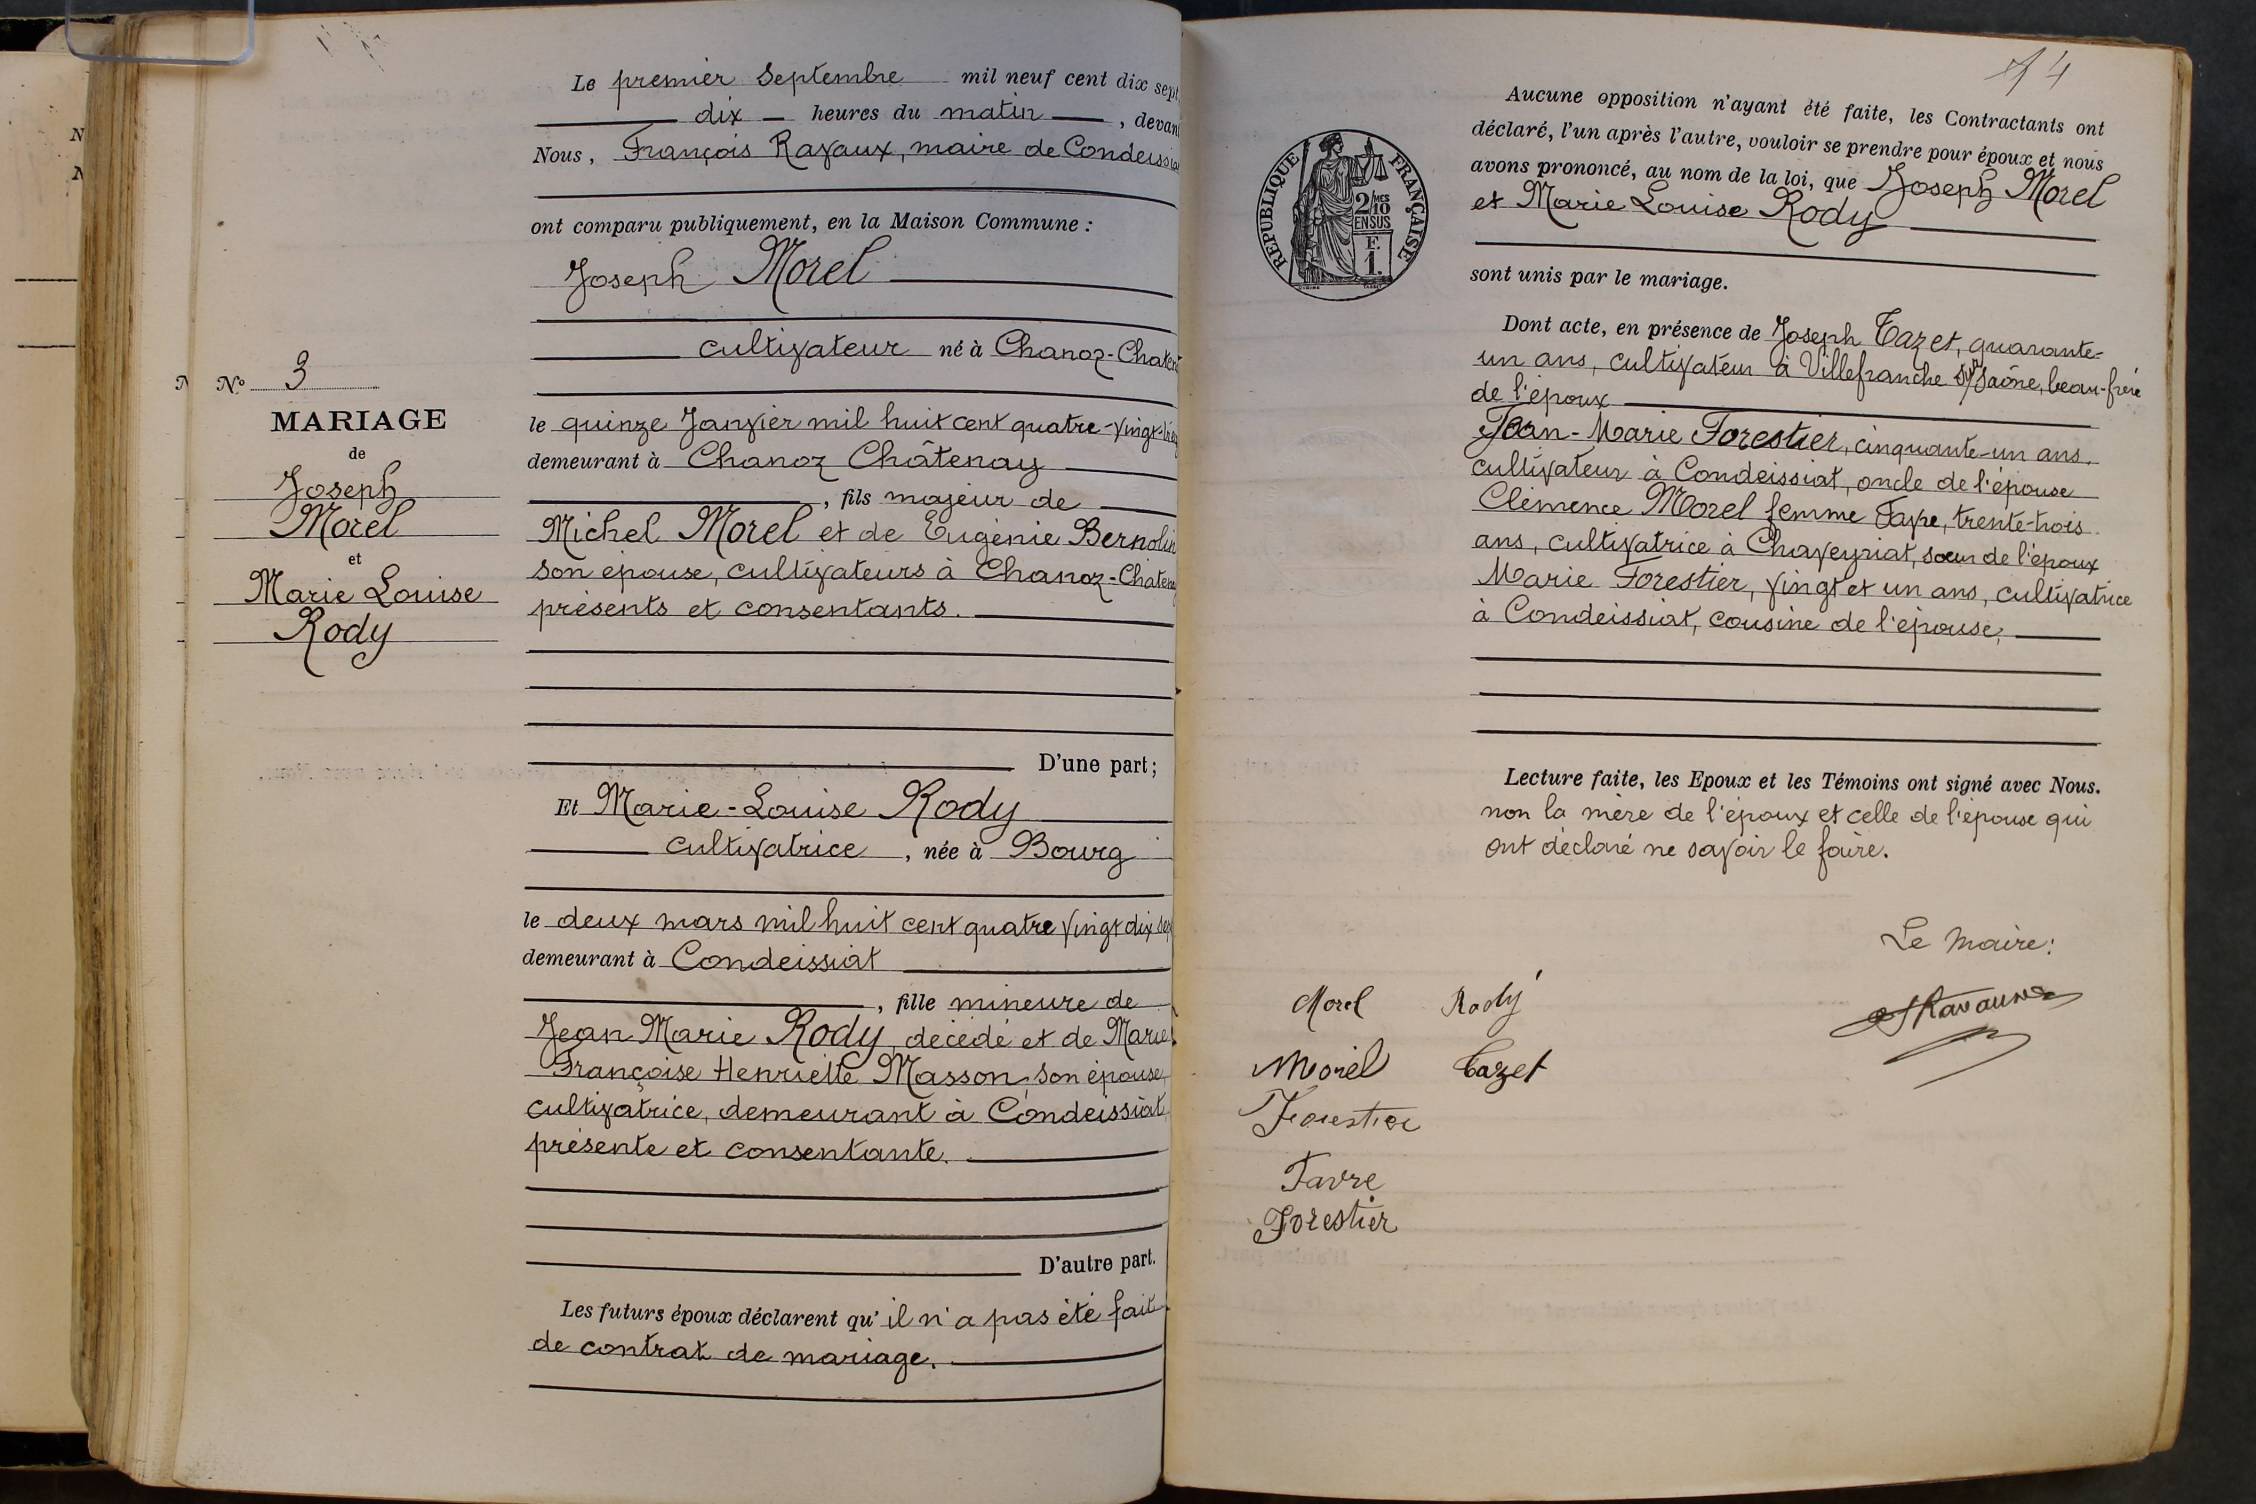 Le premier Septembre mil neuf cent dix sept,
dix heures du matin, devant
Nous, François Ravaux, maire de Condeissiat
ont comparu publiquement, en la Maison Commune :
Joseph Morel
cultivateur né à Chanoz-Chaten
N° 3
MARIAGE
de
Joseph
Morel
et
Marie Louise
Rody
le quinze Janvier mil huit cent quatre-vingt-treiz
demeurant à Chanoz Châtenay
, fils majeur de
Michel Morel et de Eugénie Bernolin
son épouse, cultivateurs à Chanoz-Chatenay
présents et consentants.
D'une part ;
Et Marie-Louise Rody
cultivatrice, née à Bourg
le deux mars mil huit cent quatre vingt dix sep
demeurant à Condeissiat
, fille mineure de
Jean Marie Rody, décédé et de Marie
Françoise Henriette Masson, son épouse,
cultivatrice, demeurant à Condeissiat,
présente et consentante.
D'autre part.
Les futurs époux déclarent qu'il n'a pas été fait
de contrat de mariage.
14
RÉPUBLIQUE FRANÇAISE
2/MES
10
EN SUS
F.
1.
Aucune opposition n'ayant été faite, les Contractants ont
déclaré, l'un après l'autre, vouloir se prendre pour époux et nous
avons prononcé, au nom de la loi, que Joseph Morel
et Marie Louise Rody
sont unis par le mariage.
Dont acte, en présence de Joseph Tazet, quarante-
un ans, cultivateur à Villefranche s/Saône, beau-frère
de l'époux
Jean-Marie Forestier, cinquante-un ans,
cultivateur à Condeissiat, oncle de l'épouse
Clémence Morel femme Favre, trente-trois
ans, cultivatrice à Chaveyriat, sœur de l'époux
Marie Forestier, vingt et un ans, cultivatrice
à Condeissiat, cousine de l'épouse,
Lecture faite, les Epoux et les Témoins ont signé avec Nous.
non la mère de l'époux et celle de l'épouse qui
ont déclaré ne savoir le faire.
Le Maire :
Morel Rody
F Ravaux
Morel Tazet
Forestier
Favre
Forestier